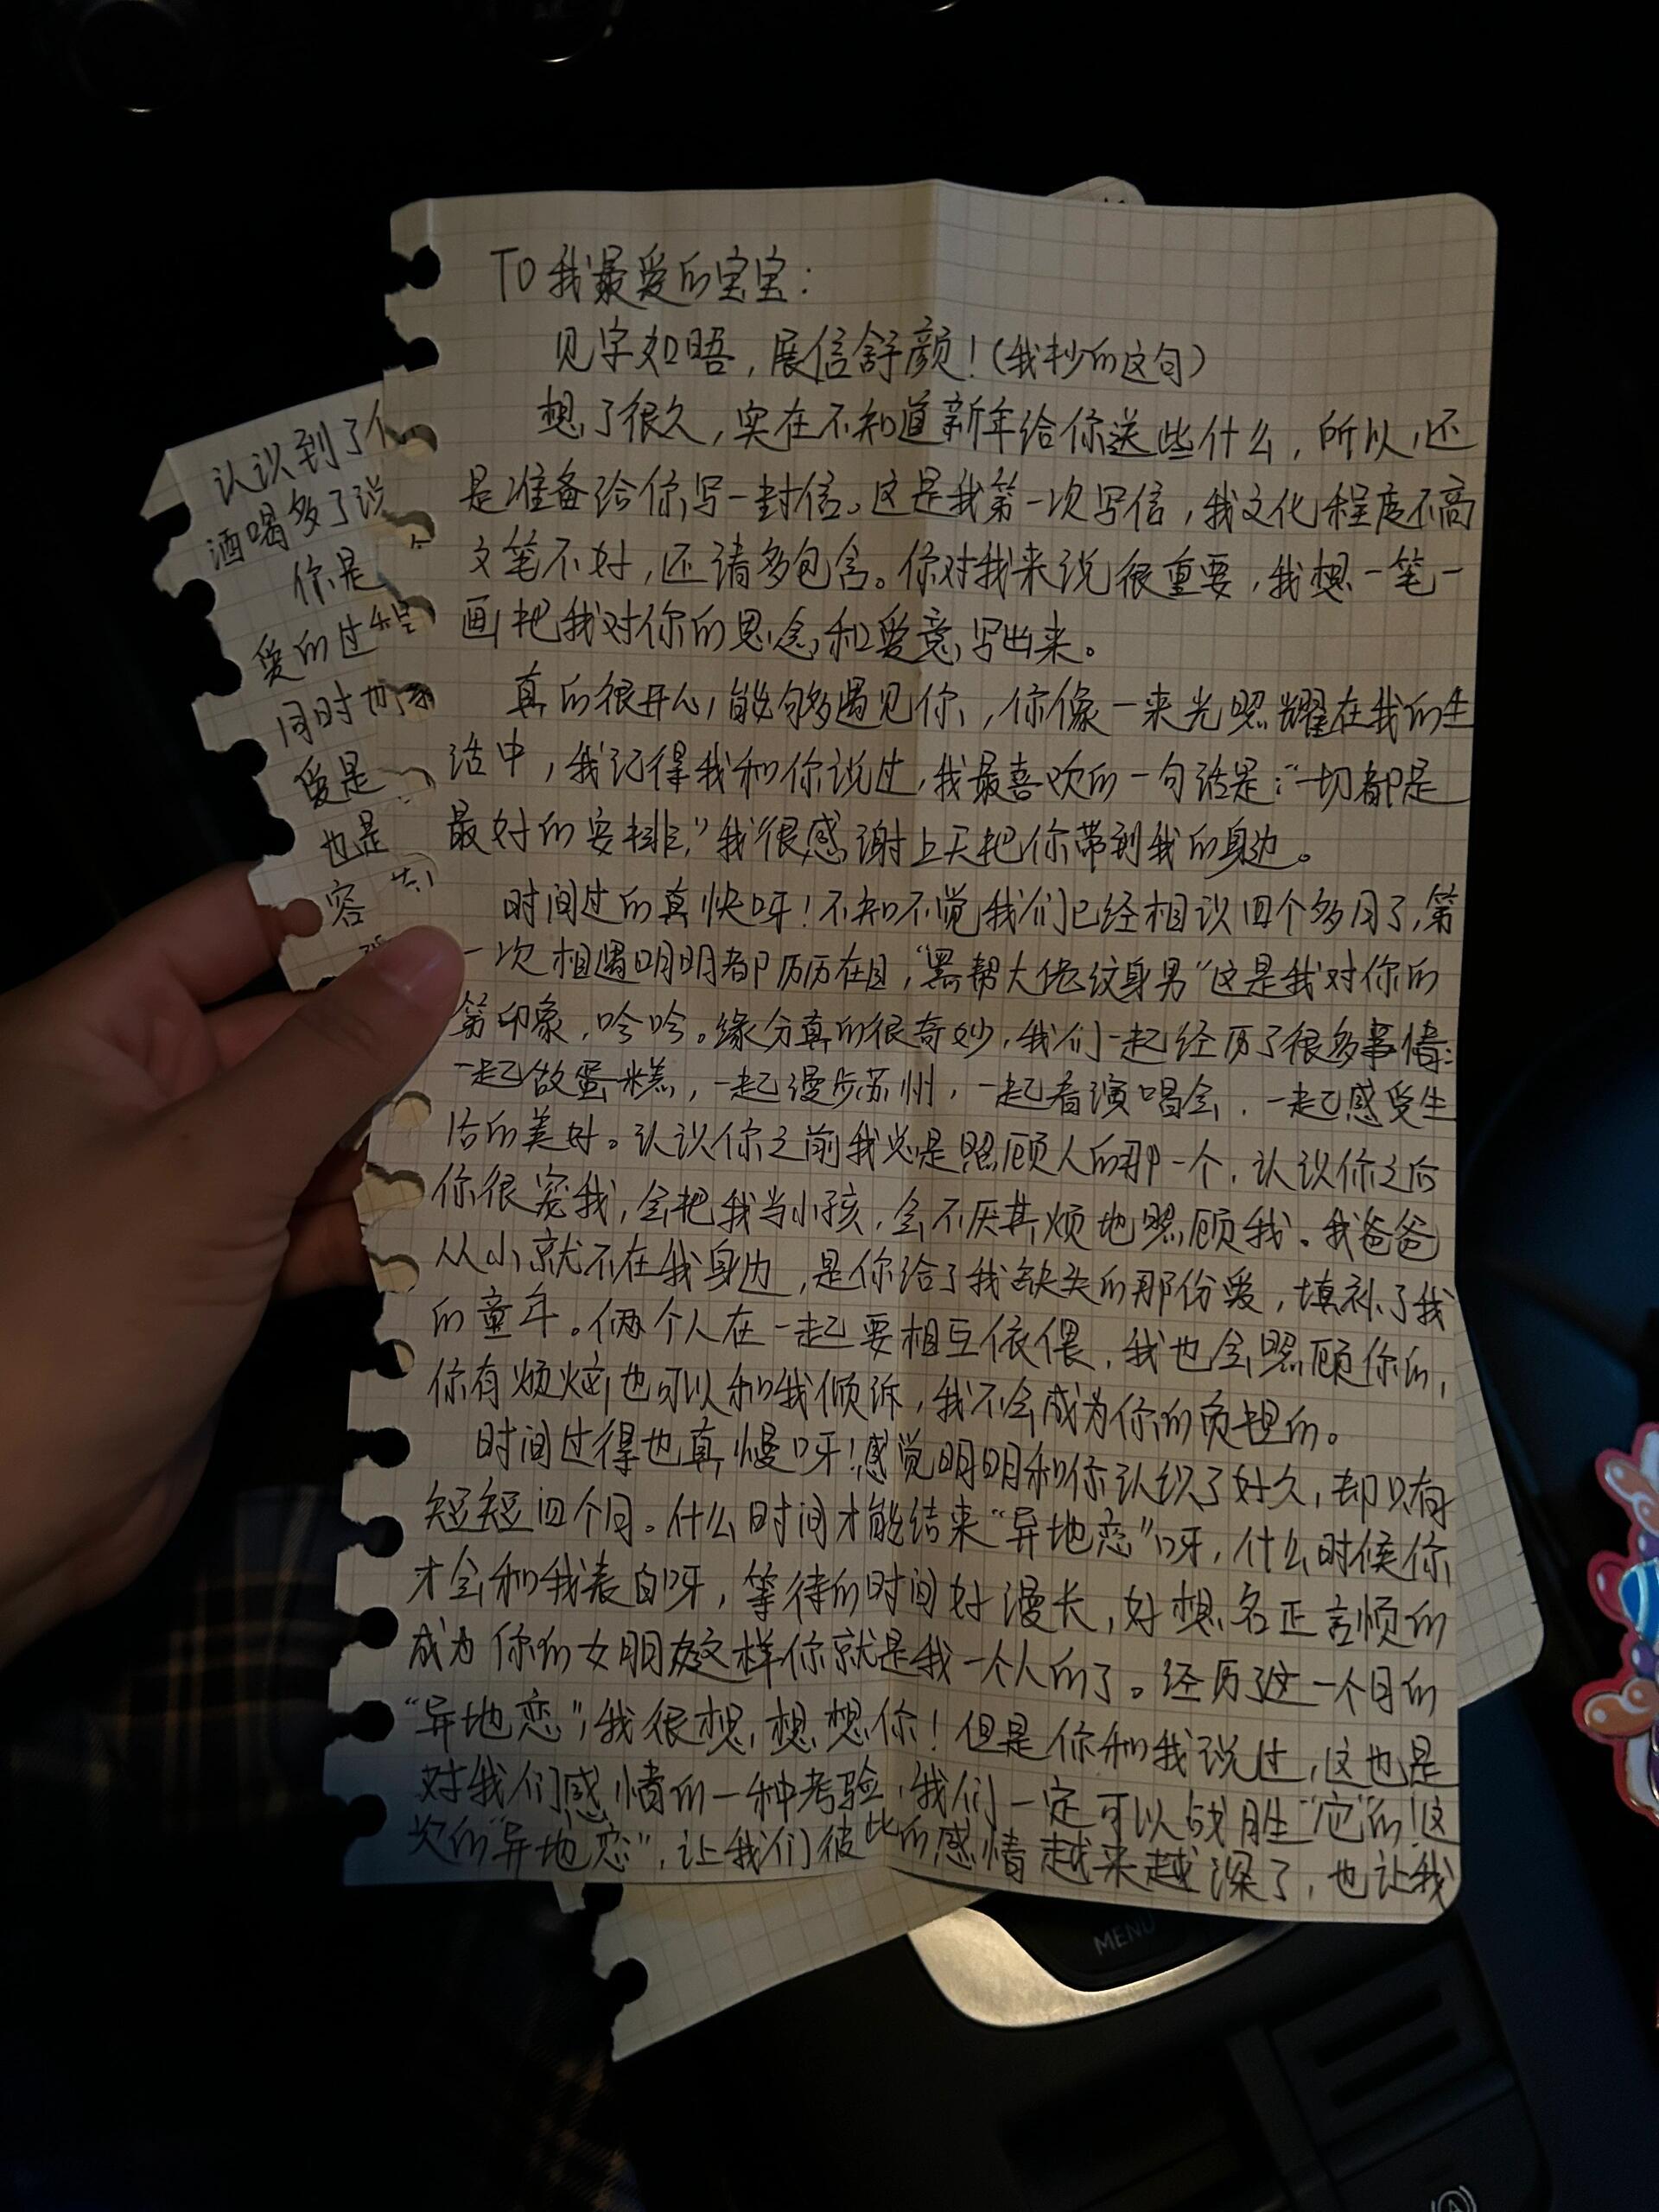 TO 我最爱的宝宝：
见字如晤，展信舒颜！（我抄的这句）
想了很久，实在不知道新年给你送些什么，所以，还
是准备给你写一封信。这是我第一次写信，我文化程度不高
文笔不好，还请多包含。你对我来说很重要，我想一笔一
画把我对你的思念和爱意写出来。
真的很开心，能够遇见你，你像一束光照耀在我的生
活中，我记得我和你说过，我最喜欢的一句话是："一切都是
最好的安排，"我很感谢上天把你带到我的身边。
时间过的真快呀！不知不觉我们已经相识四个多月了，第
一次相遇明明都历历在目，"黑帮大佬纹身男"这是我对你的
第一印象，哈哈。缘分真的很奇妙，我们一起经历了很多事情：
一起做蛋糕，一起漫步苏州，一起看演唱会，一起感受生
活的美好。认识你之前我总是照顾人的那一个，认识你之后
你很宠我，会把我当小孩，会不厌其烦地照顾我。我爸爸
从小就不在我身边，是你给了我缺失的那份爱，填补了我
的童年。俩个人在一起要相互依偎，我也会照顾你的，
你有烦恼也可以和我倾诉，我不会成为你的负担的。
时间过得也真慢呀！感觉明明和你认识了好久，却只有
短短四个月。什么时间才能结束"异地恋"呀，什么时候你
才会和我表白呀，等待的时间好漫长，好想名正言顺的
成为你的女朋友这样你就是我一个人的了。经历了这一个月的
"异地恋"，我很想，想，想你！但是你和我说过，这也是
对我们感情的一种考验，我们一定可以战胜"它"的！这
次的"异地恋"，让我们彼此的感情越来越深了，也让我
认识到了
酒喝多了说
你是
爱的过程
同时也
爱是
也是
容
MENU